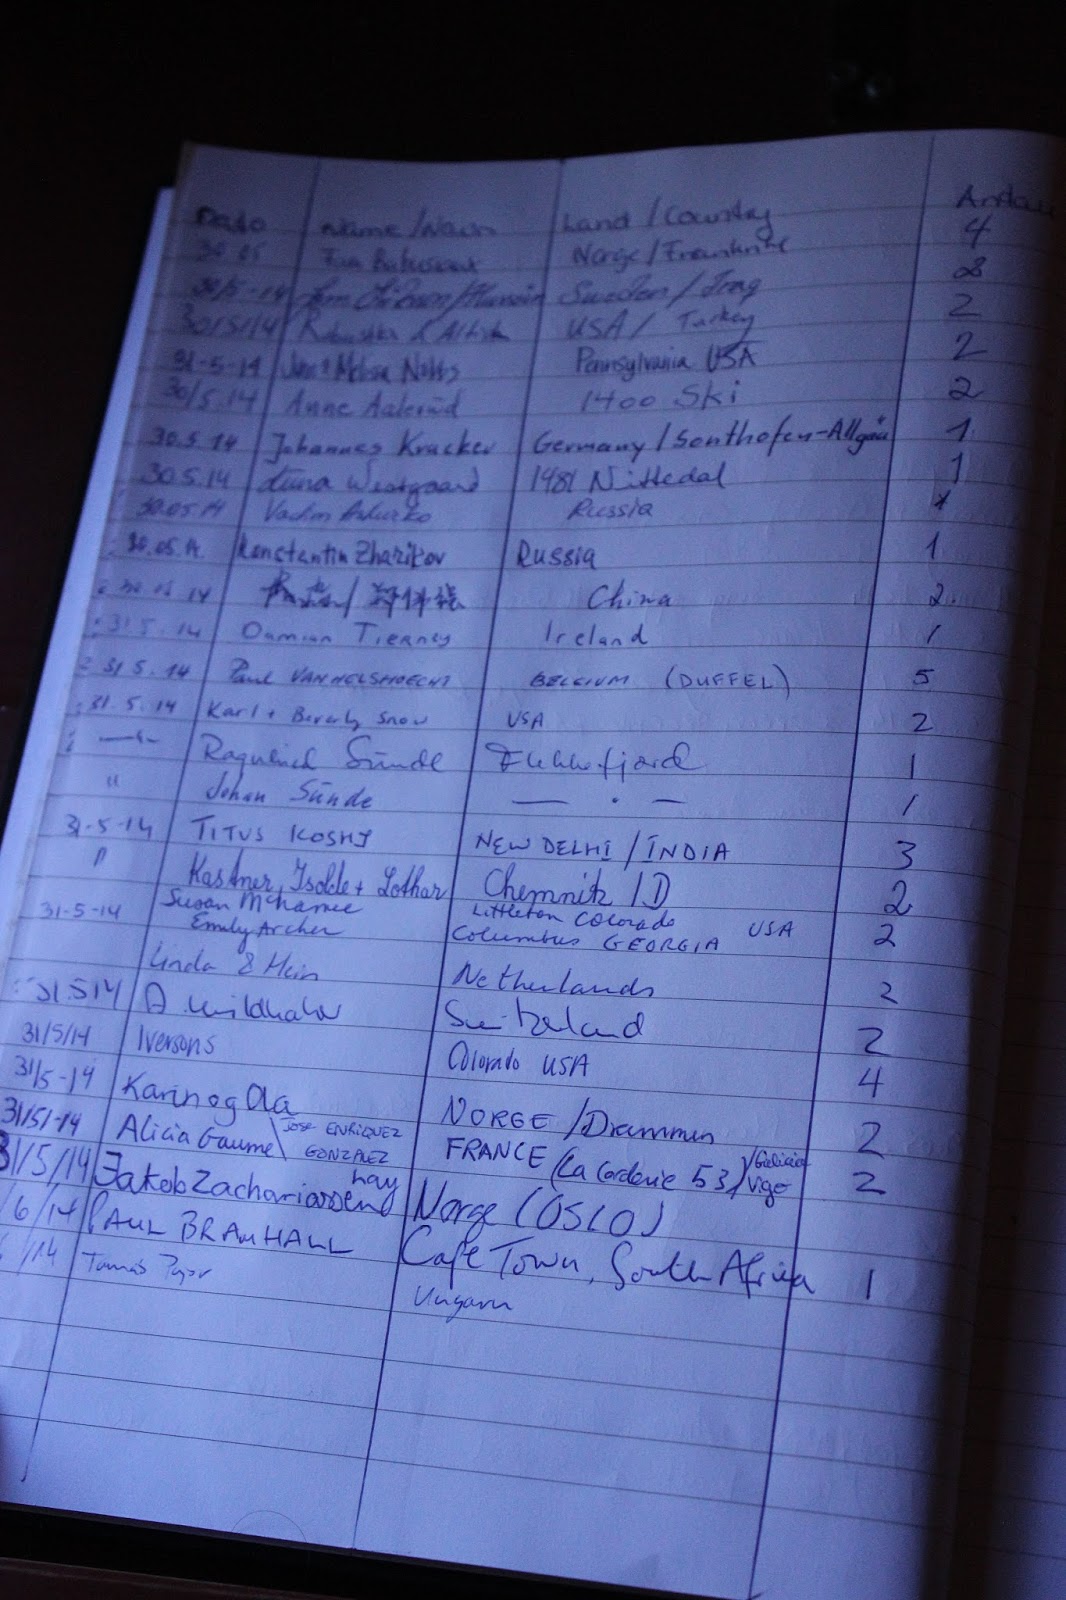 Dato Name/Navn Land/Country Antall
30.05 Norge/Frankrike 4
30/5-14 Sweden/Iraq 2
30/5/14 USA/ Turkey 2
31-5-14 Nolts Pennsylvania USA 2
30/5.14 Anne Aalerud 1400 Ski 2
30.5.14 Johannes Kracker Germany/Sonthofen-Allgäu 1
30.5.14 Westgaard 1481 Nittedal 1
30.05.14 Vadim Russia
30.05.14. Konstantin Zharikov Russia 1
14 China 2
31.5.14 Damian Tierney Ireland 1
31 5.14 Paul VANHELSHOECHT BELGIUM (DUFFEL) 5
31.5.14 Karl + Beverly Snow USA 2
—"— Ragnhild Sünde 1
" Johan Sünde — " — 1
31-5-14 TITUS KOSHY NEW DELHI/INDIA 3
" Kastner, Isolde + Lothar Chemnitz/D 2
31-5-14 Susan McNamee Littleton Colorado USA 2
Emily Archer Columbus GEORGIA
Linda & Hein Netherlands 2
31.5 14 Switzerland 2
31/5/14 Iversons Colorado USA 4
31/5-14 Karin og Ola NORGE/Drammen 2
31/5/-14 Alicia Gaume \ JOSE ENRIQUEZ GONZALEZ FRANCE (La Corderie 53)/Galicia Vigo 2
31/5/14 Jakob Zachariassen Norge (OSLO)
/6/14 PAUL BRAMHALL Cape Town, South Africa 1
/14 Tamás Ungarn